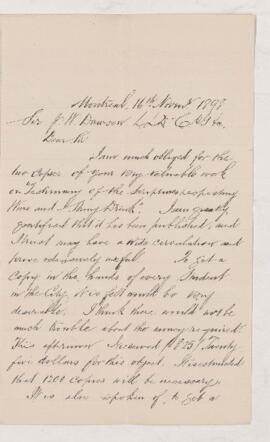 Montreal, 16th Novr 1898
Sir J. W. Dawson L.L.D. C.M.G &c.
Dear Sir
I am much obliged for the
two copies of your very valuable work
on "Testimony of the Scriptures respecting
Wine and Strong Drink". I am greatly
gratified that it has been published, and
I trust may have a wide circulation and
prove extensively useful. To get a
Copy in the hands of every Student
in the City, it is felt would be very
desirable. I think there would not be
much trouble about the money required.
This afternoon I received $25 Twenty-
five dollars for this object. It is estimated
that 1200 copies will be necessary.
It is also spoken of, to get a